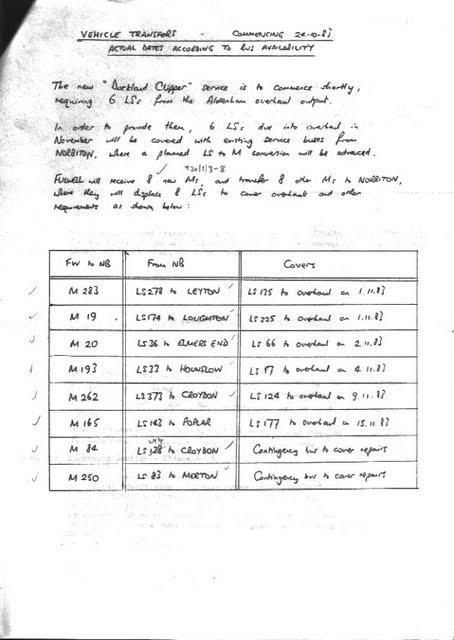 VEHICLE TRANSFERS - COMMENCING 24-10-83
ACTUAL DATES ACCORDING TO BUS AVAILABILITY
The new "Dockland Clipper" service is to commence shortly,
requiring 6 LSs from the Aldenham overhaul output.
In order to provide them, 6 LSs due into overhaul in
November will be covered with existing service buses from
NORBITON, where a planned LS to M conversion will be advanced.
920/1/3-8
FULWELL will receive 8 new Ms, and transfer 8 other Ms to NORBITON,
where they will displace 8 LSs to cover overhauls and other
requirements as shown below:
FW to NB From NB Covers
M 283 LS 278 to LEYTON LS 135 to overhaul on 1.11.83
M 19 LS 174 to LOUGHTON LS 225 to overhaul on 1.11.83
M 20 LS 36 to ELMERS END LS 66 to overhaul on 2.11.83
M 193 LS 33 to HOUNSLOW LS 97 to overhaul on 4.11.83
M 262 LS 373 to CROYDON LS 124 to overhaul on 9.11.83
M 165 LS 143 to POPLAR LS 177 to overhaul on 15.11.83
M 84 LS to CROYDON Contingency bus to cover repairs
M 250 LS 83 to MERTON Contingency bus to cover repairs